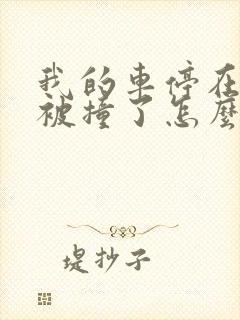 我的車停在
被撞了怎麼
堤抄子